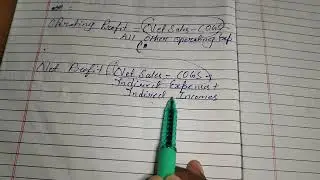 Operating Profit = (Net Sales - COGS -
All other operating Exp
Net Profit = (Net Sales - COGS -
Indirect Expenses +
Indirect Incomes